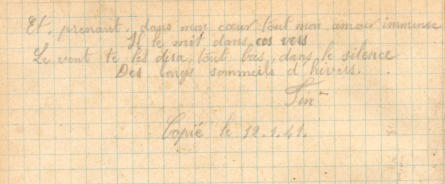 Et, prenant, dans mon cœur tout mon amour immense
Je le mit dans ces vers
Le vent te les dira, tout bas, dans le silence
Des longs sommeils d'hivers.
Fin
Copié le 12.1.41.